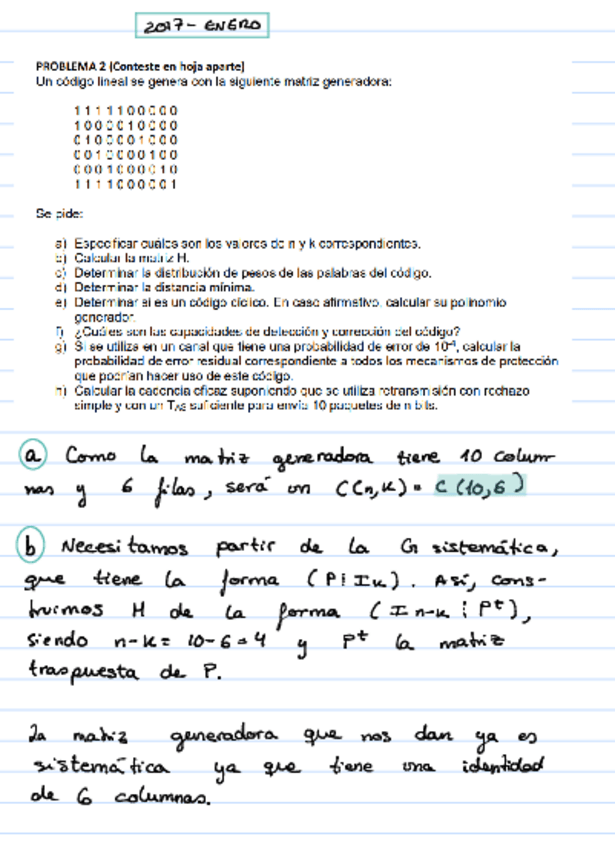 2017 - ENERO
PROBLEMA 2 (Conteste en hoja aparte)
Un código lineal se genera con la siguiente matriz generadora:
1 1 1 1 1 0 0 0 0 0
1 0 0 0 0 1 0 0 0 0
0 1 0 0 0 0 1 0 0 0
0 0 1 0 0 0 0 1 0 0
0 0 0 1 0 0 0 0 1 0
1 1 1 1 0 0 0 0 0 1
Se pide:
a) Especificar cuáles son los valores de n y k correspondientes.
b) Calcular la matriz H.
c) Determinar la distribución de pesos de las palabras del código.
d) Determinar la distancia mínima.
e) Determinar si es un código cíclico. En caso afirmativo, calcular su polinomio
generador.
f) ¿Cuáles son las capacidades de detección y corrección del código?
g) Si se utiliza en un canal que tiene una probabilidad de error de 10⁻⁴, calcular la
probabilidad de error residual correspondiente a todos los mecanismos de protección
que podrían hacer uso de este código.
h) Calcular la cadencia eficaz suponiendo que se utiliza retransmisión con rechazo
simple y con un T suficiente para envía 10 paquetes de n bits.
a Como la matriz generadora tiene 10 colum-
nas y 6 filas, será un C(n,k) = C(10,6)
b Necesitamos partir de la G sistemática,
que tiene la forma (P¦Ik). Así, cons-
truimos H de la forma (In-k ¦ Pt),
siendo n-k = 10-6=4 y Pt la matriz
traspuesta de P.
La matriz generadora que nos dan ya es
sistemática ya que tiene una identidad
de 6 columnas.